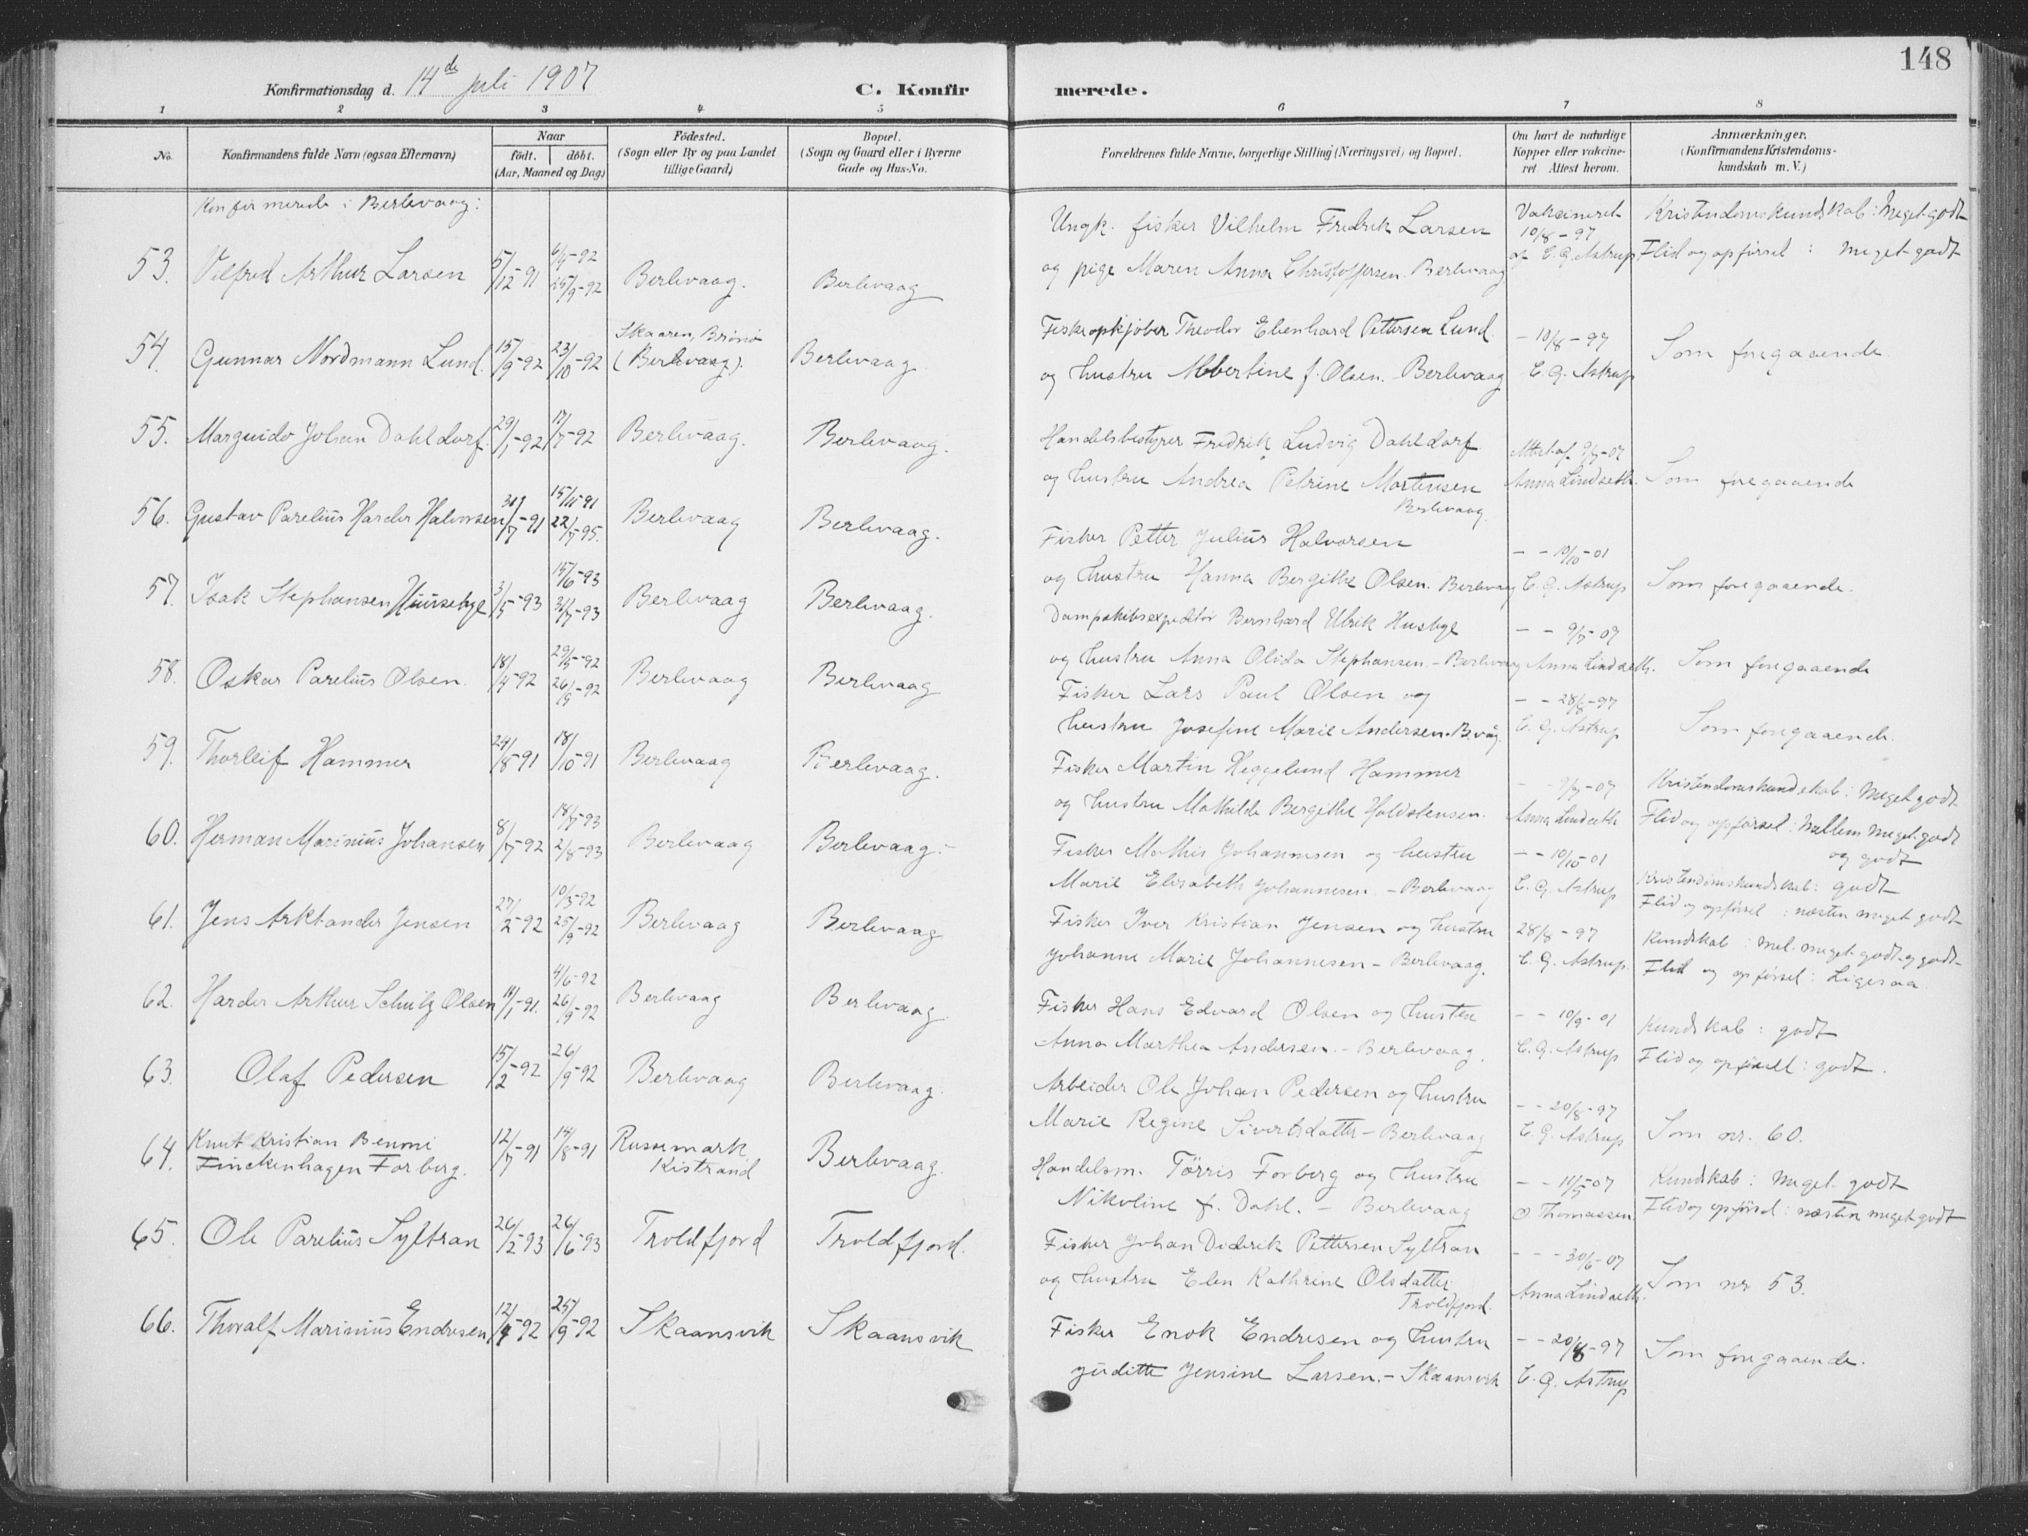 148
Konfirmationsdag d. 14de juli 1907 C. Konfirmerede.
1 2 3 4 5 6 7 8
No. Konfirmandens fulde Navn (ogsaa Efternavn) Naar födt. döbt. (Aar, Maaned og Dag) Födested. (Sogn eller By og paa Landet tillige Gaard) Bopæl. (Sogn og Gaard eller i Byerne Gade og Hus-No. Forældrenes fulde Navne, borgerlige Stilling (Næringsvei) og Bopæl. Om havt de naturlige Kopper eller vakcineret. Attest herom. Anmærkninger. (Konfirmandens Kristendomskundskab m. V.)
Konfirmerede i Berlevaag:
53. Vilfred Arthur Larsen 5/12-91 6/4-92 25/9-92 Berlevaag. Berlevaag
Ungk. fisker Vilhelm Fredrik Larsen
og pige Maren Anna Christoffersen. Berlevaag
Vaksineret 10/8-97 af E. G. Astrup
Kristendomskundskab: Meget godt
Flid og opførsel: meget godt
54. Gunnar Nordmann Lund. 15/9-92 23/10-92 Skaaren, Brönö (Berlevaag). Berlevaag.
Fiskeopkjøber Theodor Ebenhard Pettersen Lund.
og hustru Albertine f. Olsen. Berlevaag
- 10/8-97 E. G. Astrup
Som foregaaende.
55. Marguido Johan Dahl dorf. 29/1-92 17/7-92 Berlevaag. Berlevaag.
Handelsbestyrer Fredrik Ludvig Dahldorf
og hustru Andrea Petrine Mortensen
Berlevaag.
Attest af 9/7-07 Anna Lindseth.
Som foregaaende
56. Gustav Parelius Harder Halvorsen 31/7-91 15/11-91 22/7-95. Berlevaag Berlevaag.
Fisker Petter Julius Halvorsen
og hustru Hanna Bergithe Olsen. Berlevaag
- - 10/10-01 E. G. Astrup
Som foregaaende.
57. Isak Stephansen Huusebye 3/5-93 15/6-93 31/7-93 Berlevaag Berlevaag.
Dampskibsexpeditör Bernhard Ulrik Husbye
og hustru Anna Olida Stephansen. - Berlevaag
- - 9/7-07 Anna Lindseth.
Som foregaaende
58. Oskar Parelius Olsen. 18/4-92 29/5-92 26/9-92 Berlevaag Berlevaag
Fisker Lars Paul Olsen og
hustru Josefine Marie Andersen. B.våg.
- - 28/8-97 E. G. Astrup
Som foregaaende.
59. Thorleif Hammer 24/8-91 18/10-91 Berlevaag Berlevaag.
Fisker Martin Heggelund Hammer
og hustru Mathilde Bergithe Holdstensen.
- - 9/7-07 Anna Lindseth
Kristendomskundskab: Meget godt
Flid og opførsel: Mellem meget godt
og godt
60. Herman Marinius Johansen 8/7-92 18/7-93 2/8-93 Berlevaag Berlevaag.
Fisker Mathis Johannesen og hustru
Marie Elisabeth Johannesen. - Berlevaag
- - 10/10-01 E. G. Astrup
Kristendomskundskab: godt
Flid og opførsel: næsten meget godt
61. Jens Arktander Jensen 27/2-92 10/5-92 25/9-92 Berlevaag Berlevaag
Fisker Iver Kristian Jensen og hustru
Johanne Marie Johannesen - Berlevaag.
28/8-97 E. G. Astrup.
Kundskab: mel. meget godt og godt
Flid og opførsel: Ligesaa
62. Harder Arthur Schultz Olsen 14/1-91. 4/6-92 26/9-92 Berlevaag Berlevaag.
Fisker Hans Edvard Olsen og hustru
Anna Marthea Andersen. - Berlevaag.
- - 10/9-01 E. G. Astrup
Kundskab: godt
Flid og opførsel: godt.
63. Olaf Pedersen 15/2-92 26/9-92 Berlevaag Berlevaag.
Arbeider Ole Johan Pedersen og hustru
Marie Regine Sivertsdatter - Berlevaag
- - 20/8-97 E. G. Astrup
Som nr. 60.
64. Knut Kristian Benoni Finckenhagen Forberg. 12/7-91 14/8-91 Russemark, Kistrand Berlevaag.
Handelsm. Törris Forberg og hustru
Nikoline f. Dahl. - Berlevaag
- - 11/5-07 O Thomassen.
Kundskab: Meget godt
Flid og opførsel: næsten meget godt
65. Ole Parelius Syltran 26/2-93 26/6-93 Troldfjord Troldfjord.
Fisker Johan Diderik Pettersen Syltran
og hustru Elen Kathrine Olsdatter.
Troldfjord.
- - - 30/6-07 Anna Lindseth.
Som nr 53.
66. Thoralf Marinius Endresen 12/4-92 25/9-92 Skaansvik Skaansvik
Fisker Enok Endresen og hustru
Juditte Jensine Larsen. - Skaansvik
- - 20/8-97 E. G. Astrup
Som foregaaende.